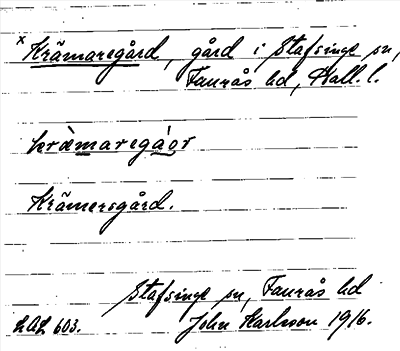 x Krämaregård, gård i Stafsinge sn,
Faurås hd, Hall. l.
kræ̀maregá̱ɒr
Krämersgård.
Stafsinge sn, Faurås hd
LAL 603. John Karlsson 1916.